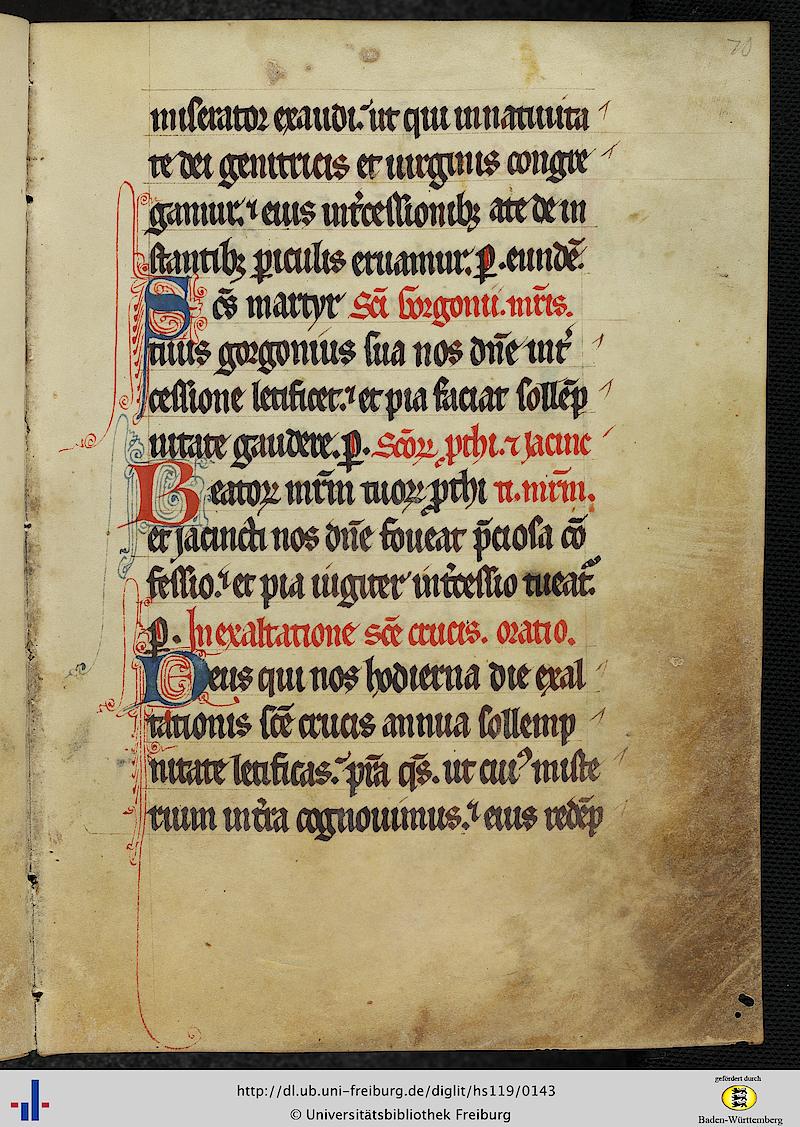 70
miserator exaudi. ut qui in natiuita
te dei genitricis et uirginis congre
gamur. ⁊ eius int̾cessionibꝫ a te de in
stantibꝫ ꝑiculis eruamur. ꝑ. eundē.
Sc̄s martyr Sc̄i Gorgonii. mr̄is.
tuus gorgonius sua nos dn̄e int̾
cessione letificet. ⁊ et pia faciat sollēp
nitate gaudere. ꝑ. Sc̄oꝝ ꝓthi. ⁊ Jacinc
Beatoꝝ mr̄m tuoꝝ ꝓthi ti. mr̄m.
et jacincti nos dn̄e foueat p̄ciosa cō
fessio. ⁊ et pia iugiter int̾cessio tueat᷑.
ꝑ. In exaltatione sc̄e crucis. oratio.
Deus qui nos hodierna die exal
tationis sc̄e crucis annua sollemp
nitate letificas. p̄ra q̄s. ut cuiꝰ miste
rium in t̾ra cognouimus. ⁊ eius redēp
http://dl.ub.uni-freiburg.de/diglit/hs119/0143
© Universitätsbibliothek Freiburg
gefördert durch
Baden-Württemberg